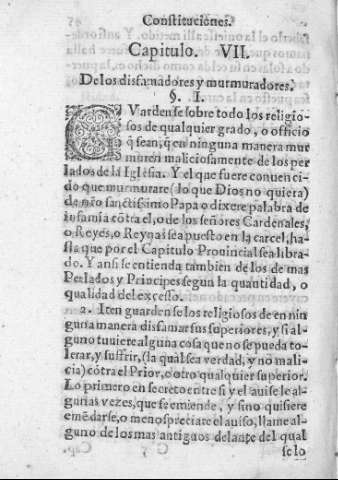 Constituciones.
Capitulo. VII.
De los disfamadores y murmuradores.
§. I.
GVardense sobre todo los religio-
sos de qualquier grado, o officio
q̃ sean; q̃ en ninguna manera mur
muren maliciosamente de los per
lados de la Iglesia. Y el que fuere convenci
do que murmurare (lo que Dios no quiera)
de nr̃o sanctissimo Papa o dixere palabra de
infamia cõtra el, o de los señores Cardenales,
o Reyes, o Reynas sea puesto en la carcel, ha-
sta que por el Capitulo Provincial sea libra-
do. Y ansi se entienda tambien de los de mas
Perlados y Principes segun la quantidad, o
qualidad del excesso.
2. Iten guardense los religiosos de en nin
guna manera disfamar sus superiores, y si al-
guno tuviere alguna cosa que no se pueda to-
lerar, y suffrir, (la qual sea verdad, y no mali-
cia) cõtra el Prior, o otro qualquier superior.
Lo primero en secreto entre si y el avise le al-
gunas vezes, que se emiende, y sino quisiere
emẽdarse, o menospreciare el aviso, llame al-
guno de los mas antiguos delante del qual
se lo